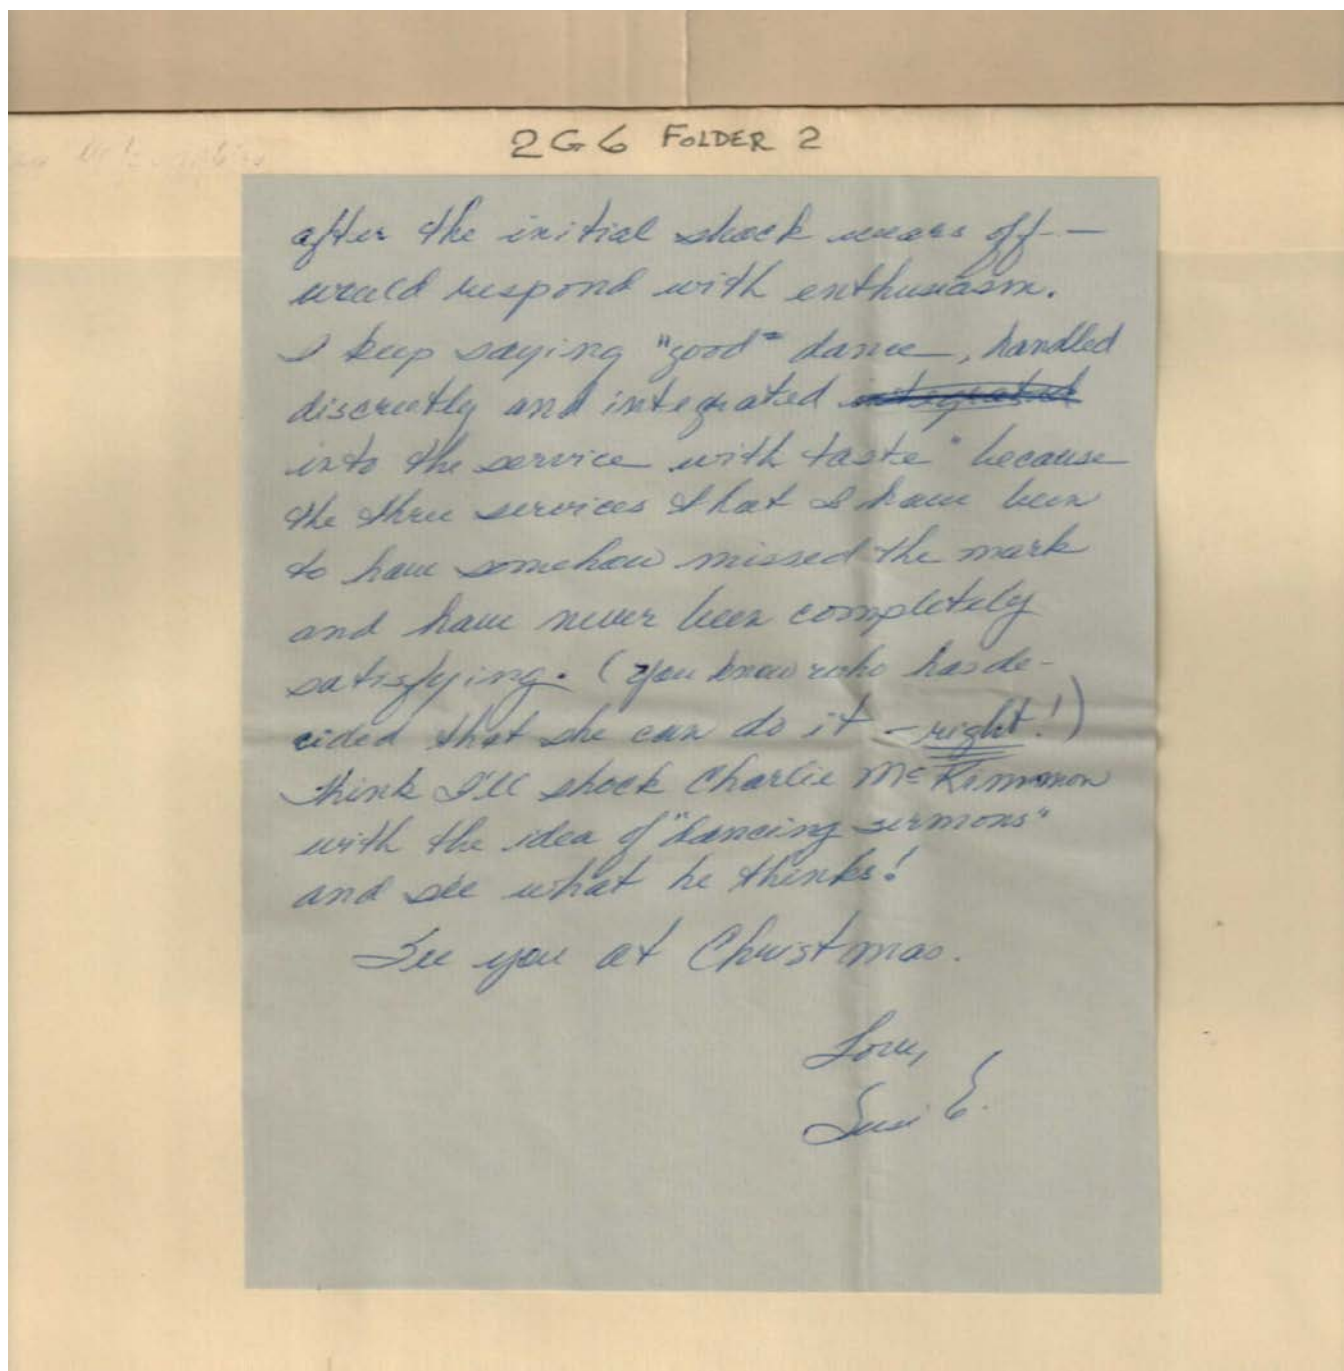 2G6 FOLDER 2
after the initial shock wears off —
would respond with enthusiasm.
I keep saying "good" dance, handled
discreetly and integrated integrated
into the service with taste" because
the three services that I have been
to have somehow missed the mark
and have never been completely
satisfying. (You know who has de-
cided that she can do it – right!)
Think I'll shock Charlie McKimmon
with the idea of "dancing sermons"
and see what he thinks!
See you at Christmas.
Love,
Susi E.